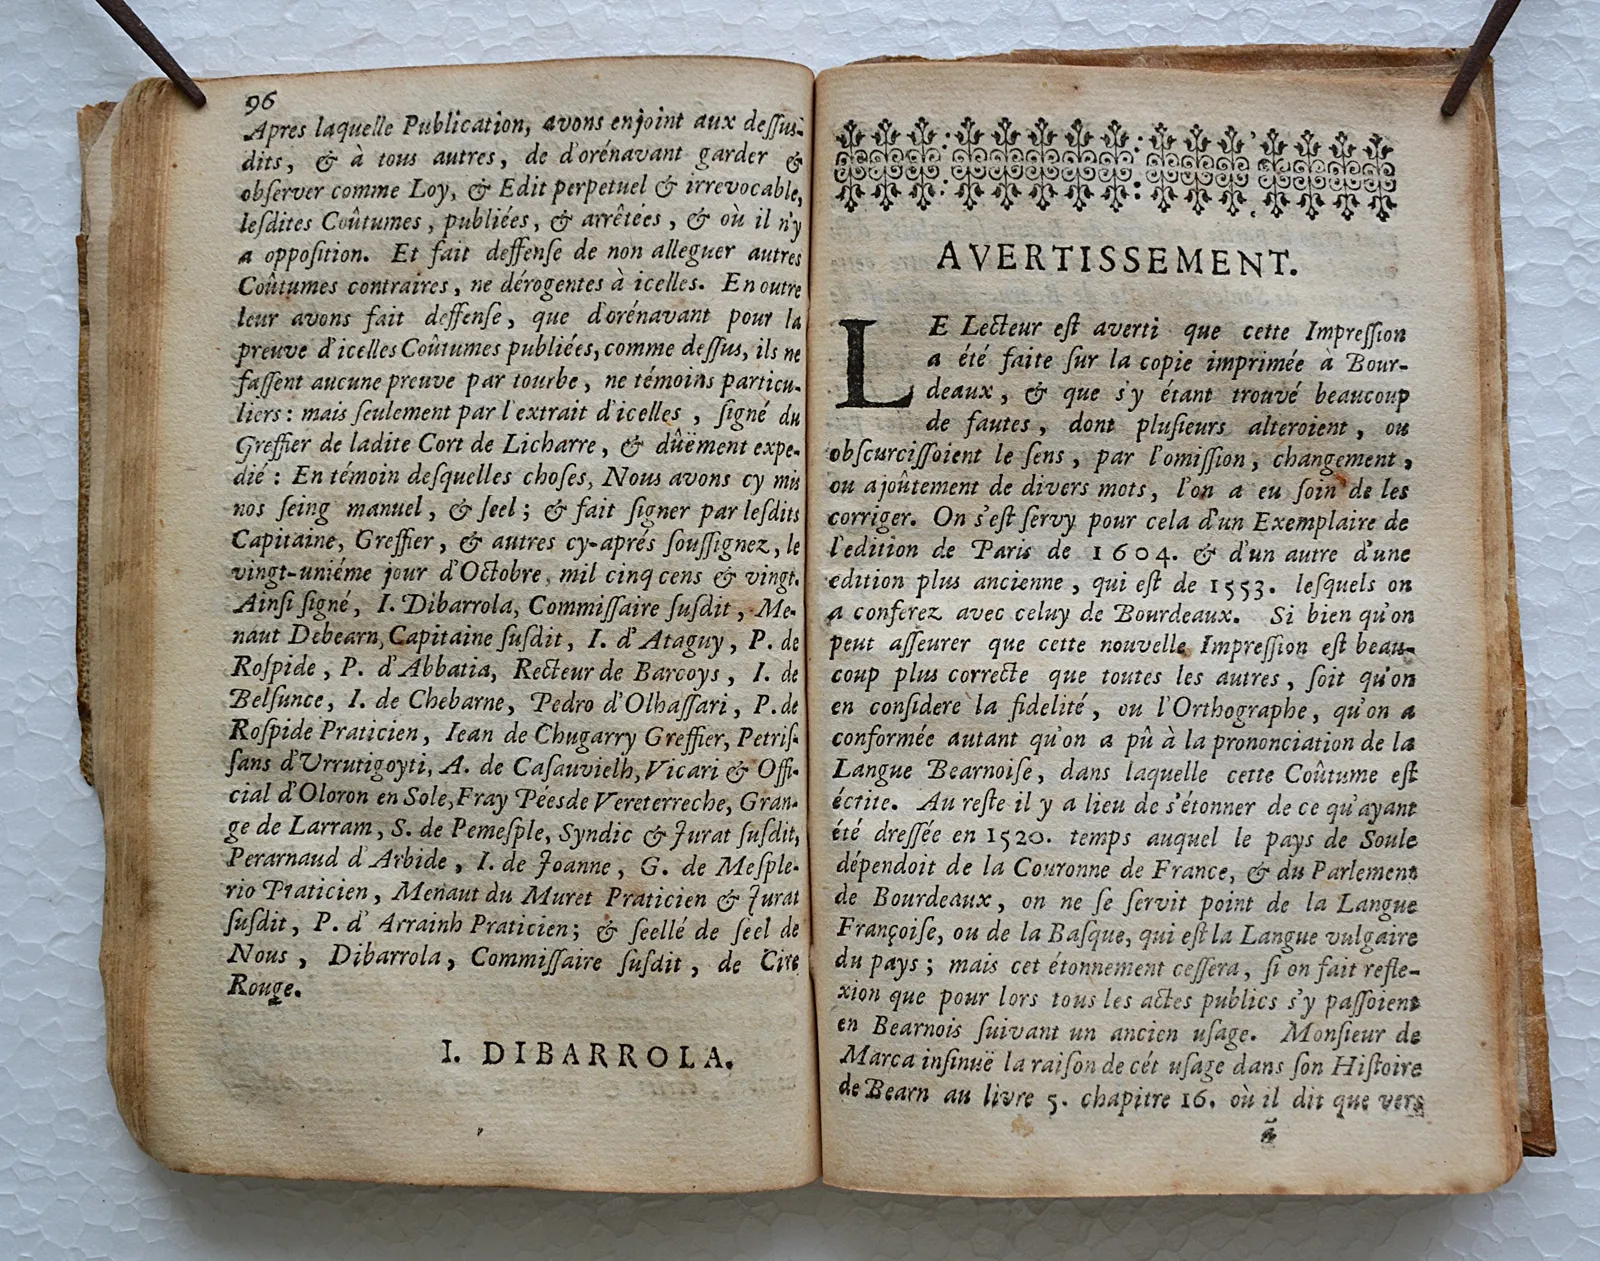 96
Apres laquelle Publication, avons enjoint aux deſſus-
dits, & à tous autres, de d'orénavant garder &
obſerver comme Loy, & Edit perpetuel & irrevocable,
leſdites Coûtumes, publiées, & arrêtées, & où il n'y
a oppoſition. Et fait deffenſe de non alleguer autres
Coûtumes contraires, ne dérogentes à icelles. En outre
leur avons fait deffenſe, que d'orénavant pour la
preuve d'icelles Coûtumes publiées, comme deſſus, ils ne
faſſent aucune preuve par tourbe, ne témoins particu-
liers: mais ſeulement par l'extrait d'icelles, ſigné du
Greffier de ladite Cort de Licharre, & dûëment expe-
dié: En témoin deſquelles choſes, Nous avons cy mis
nos ſeing manuel, & ſeel; & fait ſigner par leſdits
Capitaine, Greffier, & autres cy-aprés ſouſſignez, le
vingt-uniéme jour d'Octobre, mil cinq cens & vingt.
Ainſi ſigné, I. Dibarrola, Commiſſaire ſuſdit, Me-
naut Debearn, Capitaine ſuſdit, I. d'Ataguy, P. de
Roſpide, P. d'Abbatia, Recteur de Barcoys, I. de
Belſunce, I. de Chebarne, Pedro d'Olhaſſari, P. de
Roſpide Praticien, Iean de Chugarry Greffier, Petriſ-
ſans d'Urrutigoyti, A. de Caſauvielh, Vicari & Offi-
cial d'Oloron en Sole, Fray Péesde Vereterreche, Gran-
ge de Larram, S. de Pemeſple, Syndic & Jurat ſuſdit,
Perarnaud d'Arbide, I. de Joanne, G. de Meſple-
rio Praticien, Menaut du Muret Praticien & Jurat
ſuſdit, P. d'Arrainh Praticien; & ſeellé de ſeel de
Nous, Dibarrola, Commiſſaire ſuſdit, de Cire
Rouge.
I. DIBARROLA.
AVERTISSEMENT.
LE Lecteur eſt averti que cette Impreſſion
a été faite ſur la copie imprimée à Bour-
deaux, & que s'y étant trouvé beaucoup
de fautes, dont pluſieurs alteroient, ou
obſcurciſſoient le ſens, par l'omiſſion, changement,
ou ajoûtement de divers mots, l'on a eu ſoin de les
corriger. On s'eſt ſervy pour cela d'un Exemplaire de
l'edition de Paris de 1604. & d'un autre d'une
edition plus ancienne, qui eſt de 1553. leſquels on
a conferez avec celuy de Bourdeaux. Si bien qu'on
peut aſſeurer que cette nouvelle Impreſſion eſt beau-
coup plus correcte que toutes les autres, ſoit qu'on
en conſidere la fidelité, ou l'Orthographe, qu'on a
conformée autant qu'on a pû à la prononciation de la
Langue Bearnoiſe, dans laquelle cette Coûtume eſt
écrite. Au reſte il y a lieu de s'étonner de ce qu'ayant
été dreſſée en 1520. temps auquel le pays de Soule
dépendoit de la Couronne de France, & du Parlement
de Bourdeaux, on ne ſe ſervit point de la Langue
Françoiſe, ou de la Baſque, qui eſt la Langue vulgaire
du pays; mais cet étonnement ceſſera, ſi on fait refle-
xion que pour lors tous les actes publics s'y paſſoient
en Bearnois ſuivant un ancien uſage. Monſieur de
Marca inſinuë la raiſon de cét uſage dans ſon Hiſtoire
de Bearn au livre 5. chapitre 16. où il dit que vers